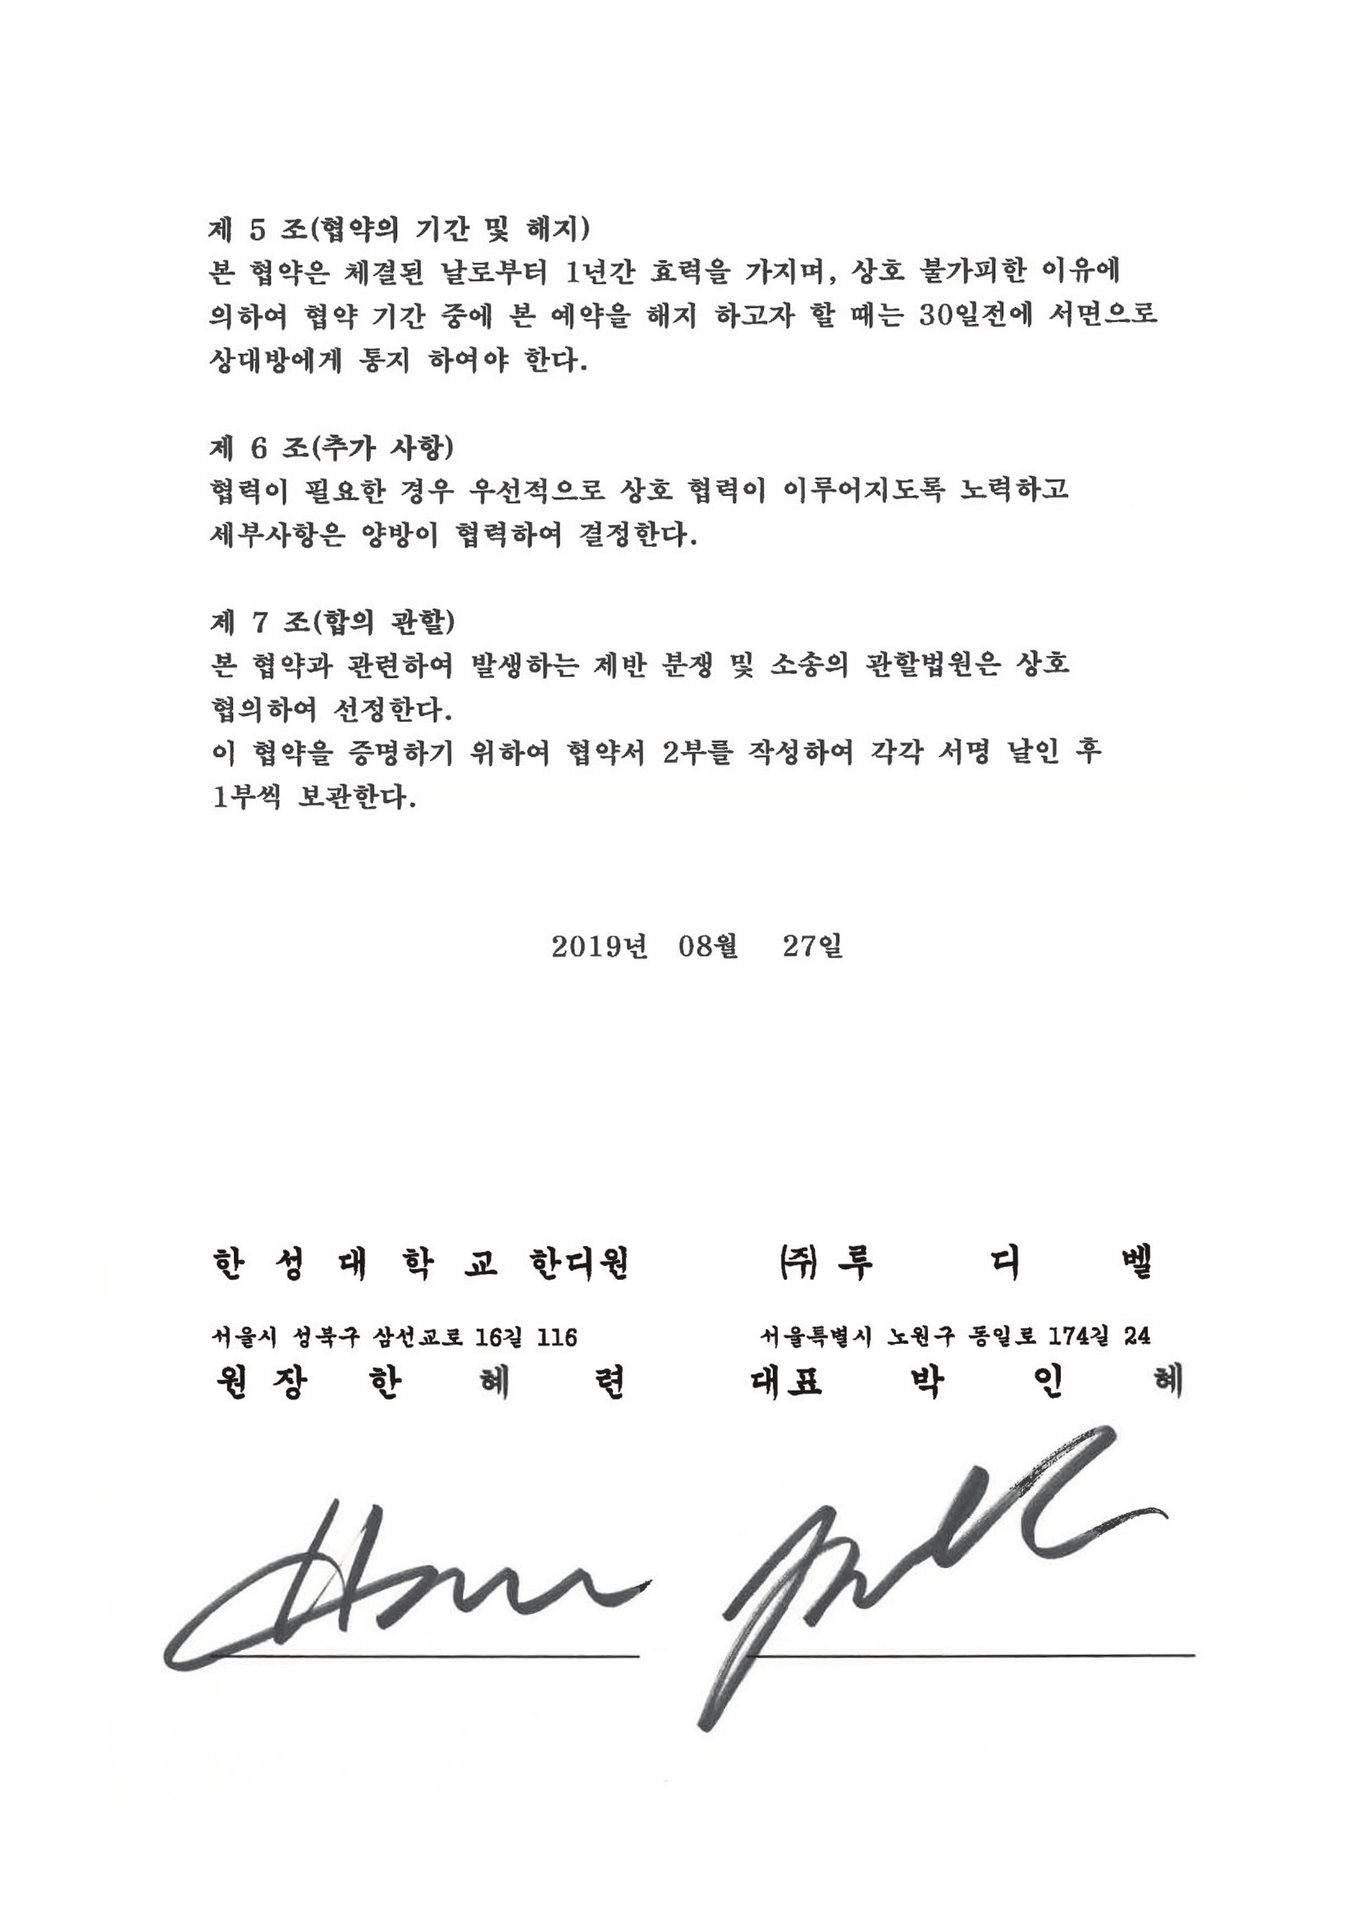 제 5 조(협약의 기간 및 해지)
본 협약은 체결된 날로부터 1년간 효력을 가지며, 상호 불가피한 이유에
의하여 협약 기간 중에 본 예약을 해지 하고자 할 때는 30일전에 서면으로
상대방에게 통지 하여야 한다.
제 6 조(추가 사항)
협력이 필요한 경우 우선적으로 상호 협력이 이루어지도록 노력하고
세부사항은 양방이 협력하여 결정한다.
제 7 조(합의 관할)
본 협약과 관련하여 발생하는 제반 분쟁 및 소송의 관할법원은 상호
협의하여 선정한다.
이 협약을 증명하기 위하여 협약서 2부를 작성하여 각각 서명 날인 후
1부씩 보관한다.
2019년 08월 27일
한 성 대 학 교 한디원
서울시 성북구 삼선교로 16길 116
원 장 한 혜 련
(주) 루 디 벨
서울특별시 노원구 동일로 174길 24
대표 박 인 혜